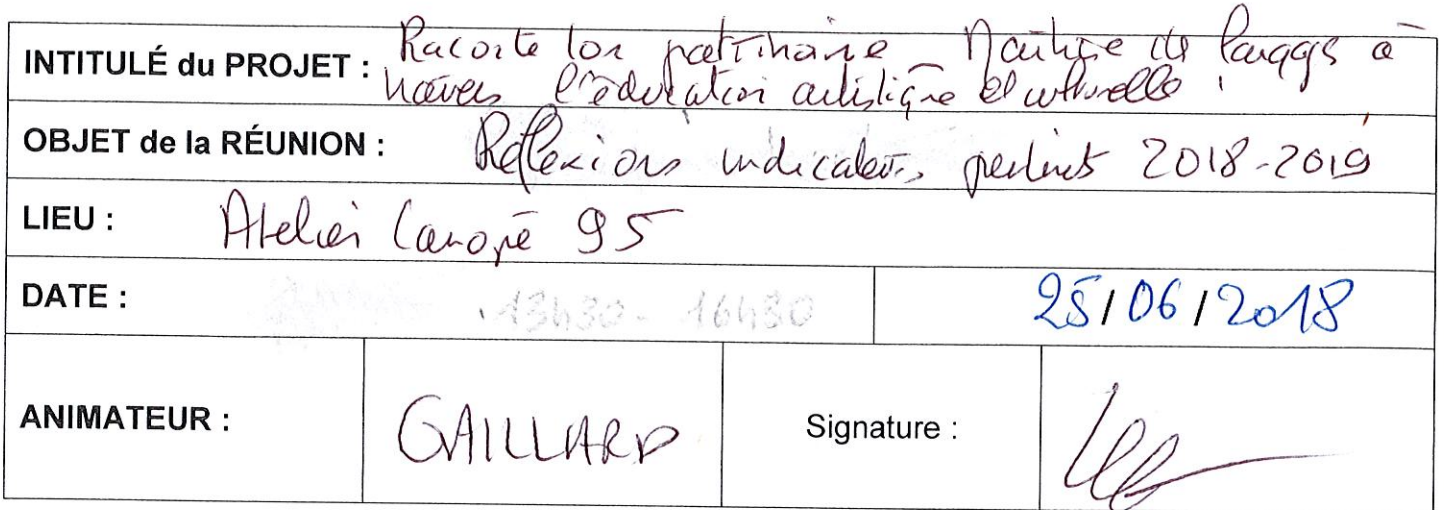 INTITULÉ du PROJET : Raconte ton patrimoine _ Maîtrise de langages à
travers l'éducation artistique et culturelle !
OBJET de la RÉUNION : Réflexions indicateurs pertinents 2018-2019
LIEU : Atelier Canopé 95
DATE : 13h30 - 16h30 25/06/2018
ANIMATEUR : GAILLARD Signature :